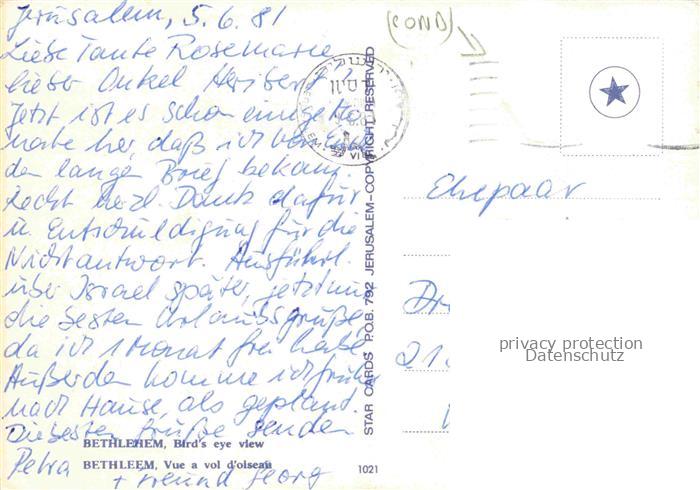 Jerusalem, 5.6.81
Liebe Tante Rosemarie
lieber Onkel Heribert,
jetzt ist es schon einige Mo-
nate her, daß ich von Euch
den langen Brief bekam.
Recht herzl. Dank dafür
u. Entschuldigung für die
Nichtantwort. Ausführl.
über Israel später, jetzt nur
die besten Urlaubsgrüße,
da ich 1 Monat frei habe.
Außerdem komme ich früher
nach Hause, als geplant.
Die besten Grüße senden
Petra + Freund Georg
BETHLEHEM, Bird's eye view
BETHLEEM, Vue a vol d'oiseau
1021
STAR CARDS P.O.B. 792 JERUSALEM-COPYRIGHT RESERVED
Ehepaar
Dr
21
privacy protection
Datenschutz